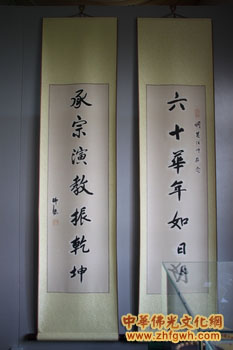 六十華年如日月
承宗演教振乾坤
中華佛光文化網
www.zhfgwh.com